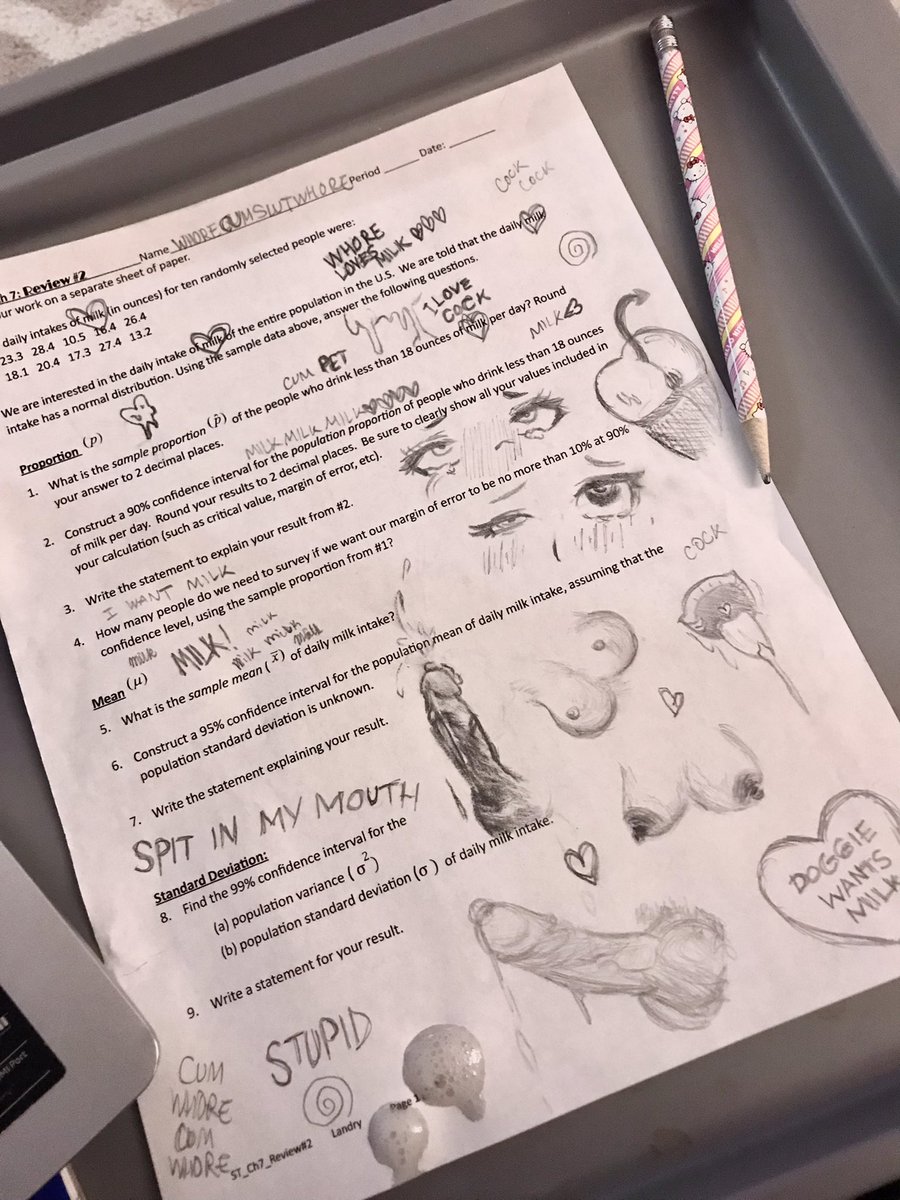 Name WHORECUMSLUTWHORE Period ____ Date: ____
COCK
COCK
h 7: Review #2
ur work on a separate sheet of paper.
WHORE
LOVES MILK ♡♡♡
daily intakes of milk (in ounces) for ten randomly selected people were:
23.3 28.4 10.5 16.4 26.4
18.1 20.4 17.3 27.4 13.2
We are interested in the daily intake of milk of the entire population in the U.S. We are told that the daily milk
intake has a normal distribution. Using the sample data above, answer the following questions.
I LOVE
COCK
CUM PET
MILK<3
Proportion (p)
1. What is the sample proportion (p̂) of the people who drink less than 18 ounces of milk per day? Round
your answer to 2 decimal places.
MILK MILK MILK ♡♡♡♡
2. Construct a 90% confidence interval for the population proportion of people who drink less than 18 ounces
of milk per day. Round your results to 2 decimal places. Be sure to clearly show all your values included in
your calculation (such as critical value, margin of error, etc).
3. Write the statement to explain your result from #2.
I WANT MILK
4. How many people do we need to survey if we want our margin of error to be no more than 10% at 90%
confidence level, using the sample proportion from #1?
COCK
milk MILK! milk
milk milk milk
Mean (μ)
5. What is the sample mean (x̄) of daily milk intake?
6. Construct a 95% confidence interval for the population mean of daily milk intake, assuming that the
population standard deviation is unknown.
7. Write the statement explaining your result.
SPIT IN MY MOUTH
Standard Deviation:
8. Find the 99% confidence interval for the
(a) population variance (σ²)
(b) population standard deviation (σ) of daily milk intake.
DOGGIE
WANTS
MILK
9. Write a statement for your result.
STUPID
CUM
WHORE
CUM
WHORE
ST_Ch7_Review#2 Landry Page 1